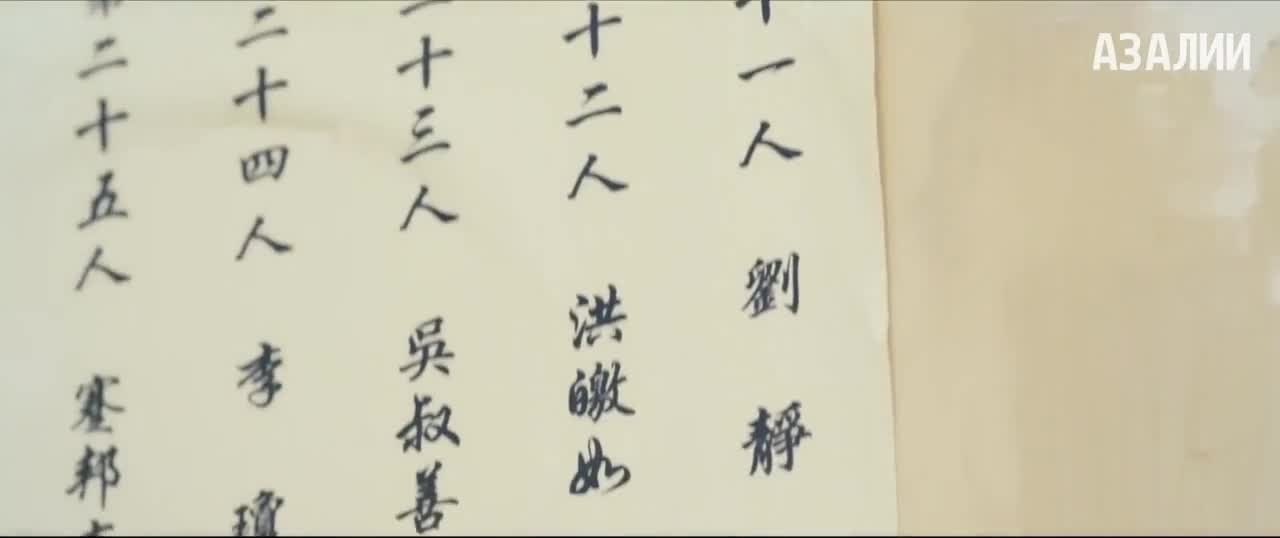 АЗАЛИИ
十一人 劉 靜
十二人 洪皦如
二十三人 吳叔善
二十四人 李
第二十五人 邦